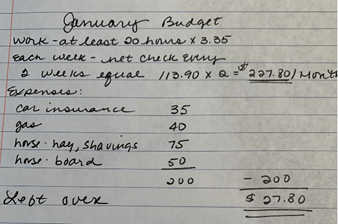 January Budget
work - at least 20 hours x 3.35
each week - net check every
2 weeks equal 113.90 x 2 = $227.80/Month
Expenses:
car insurance 35
gas 40
horse - hay, shavings 75
horse - board 50
200 - 200
Left over $ 27.80